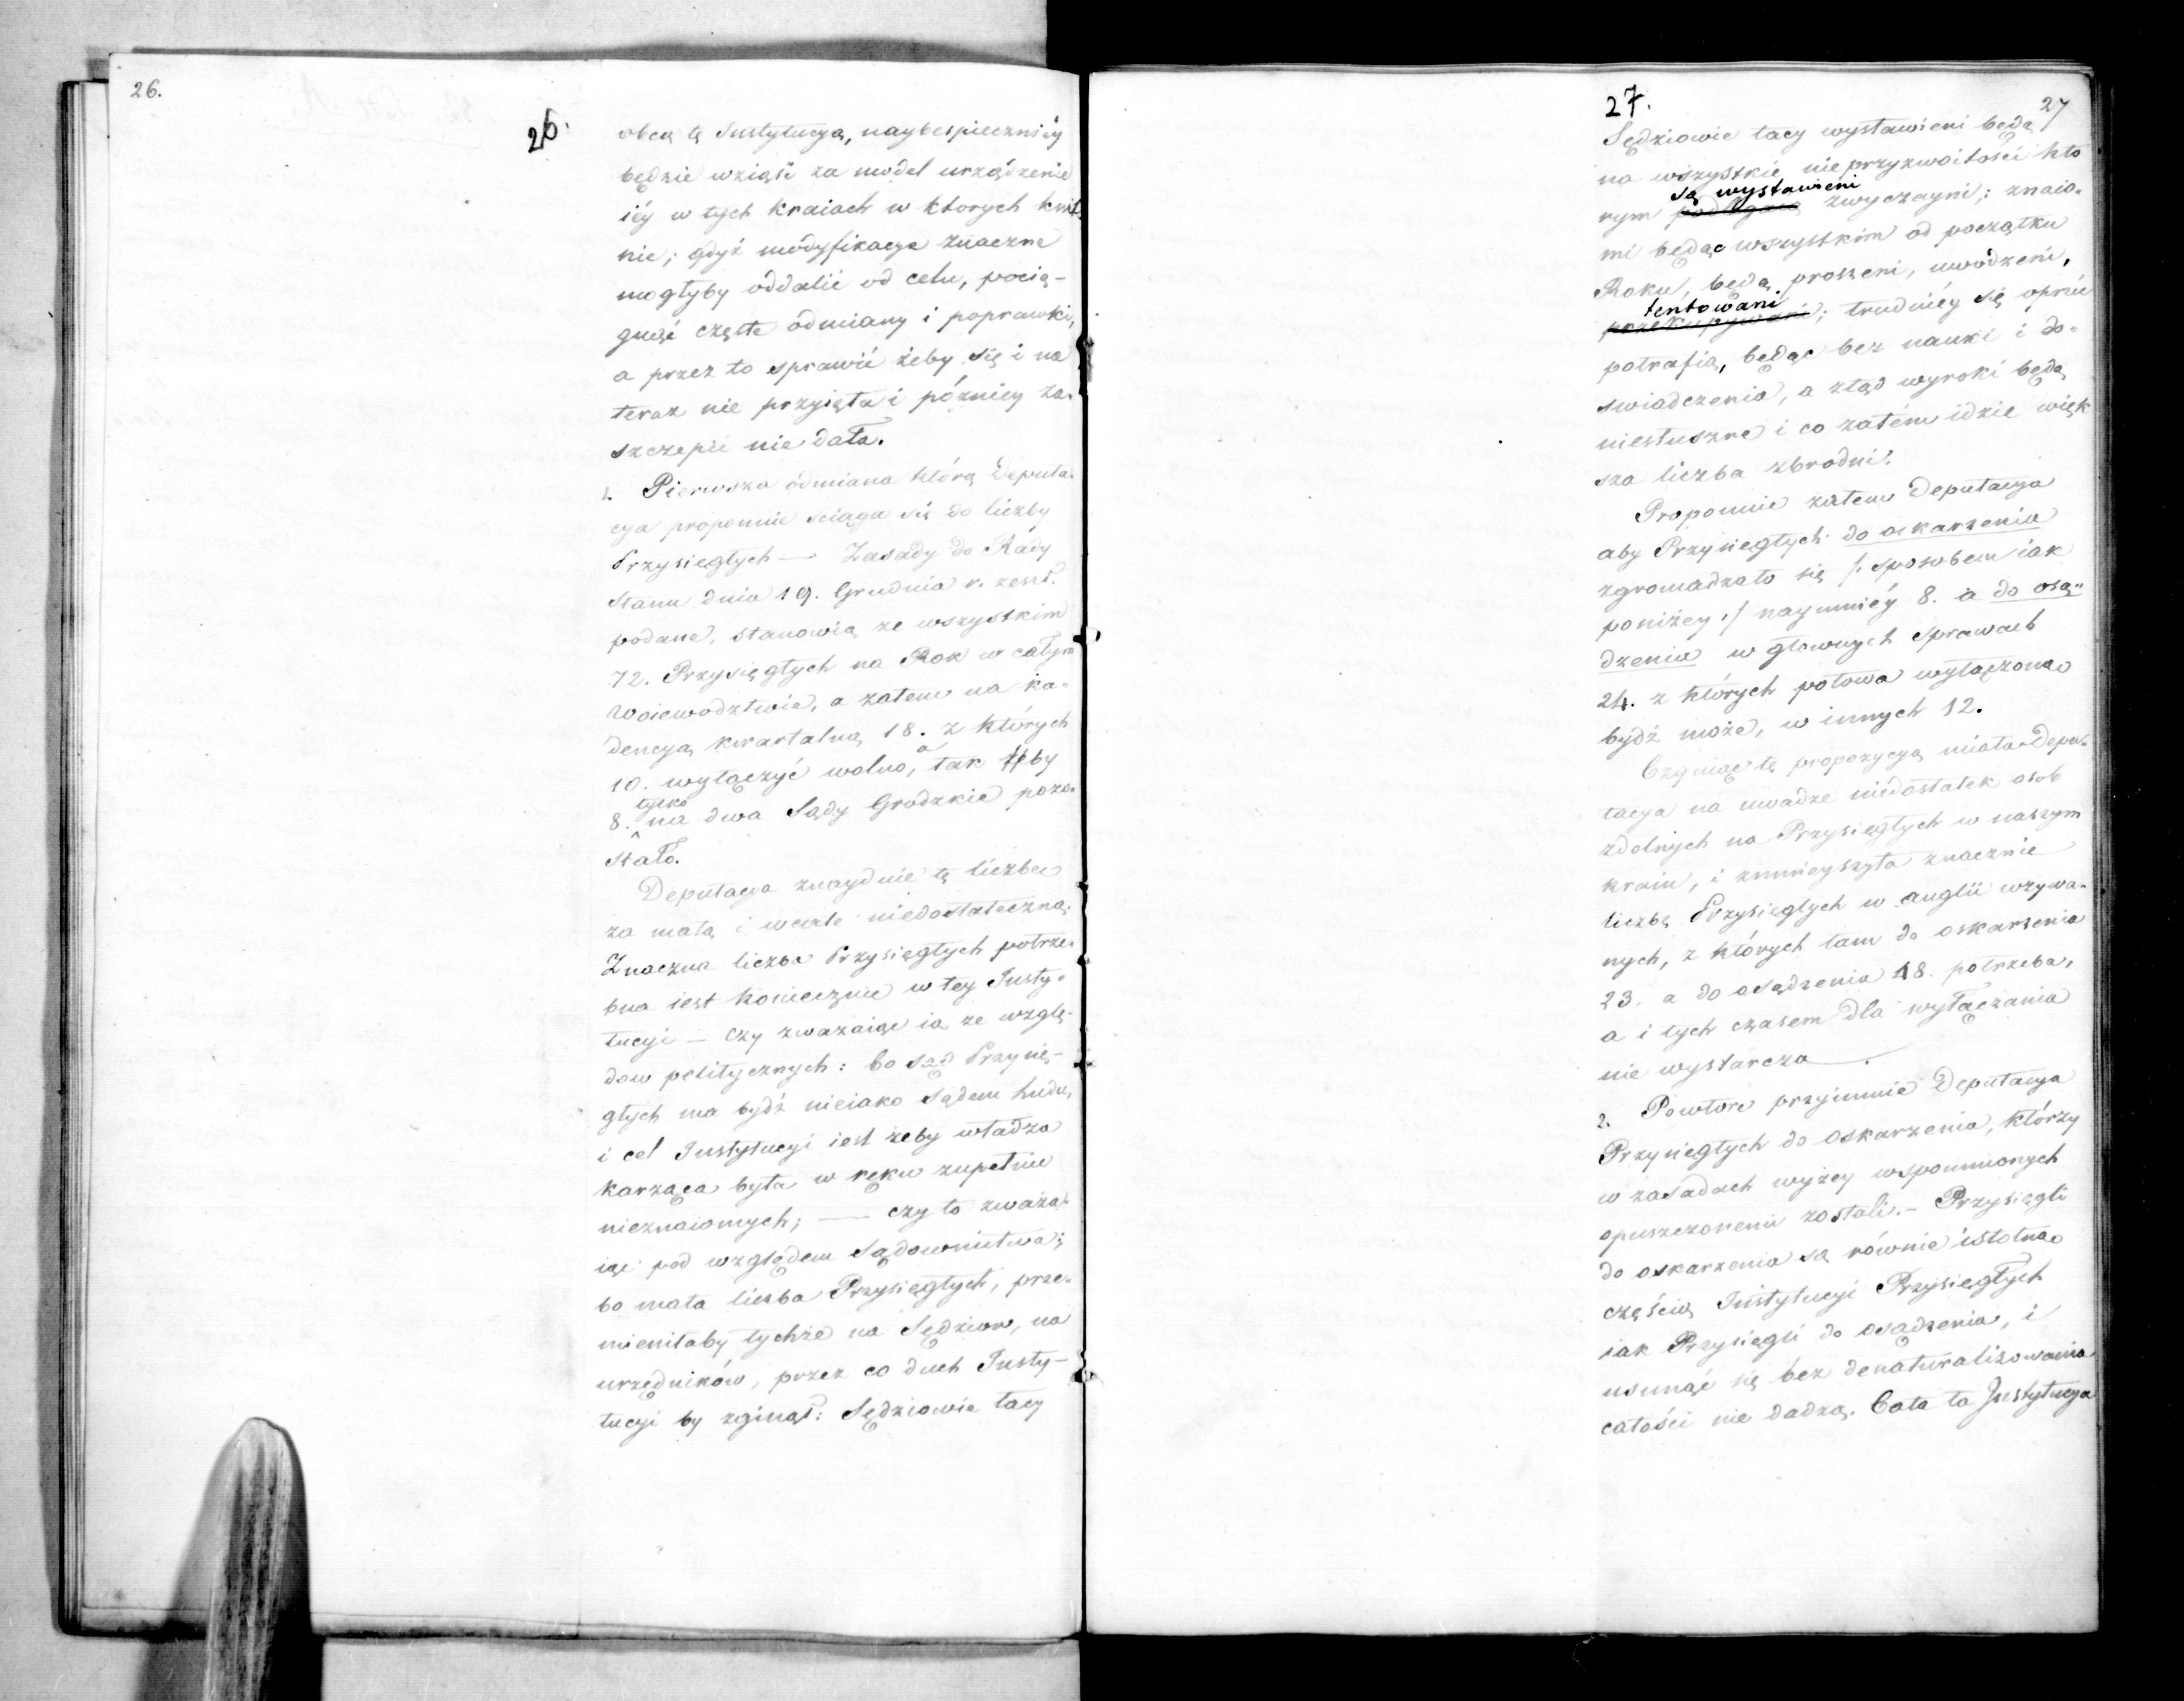 26.
26.
obcą tę Instytucyą, naybespieczniéy
będzie wziąść za model urządzenie
iéy w tych kraiach w ktorych kwit
nie; gdyż modyfikacye znaczne
mogłyby oddalić od celu, pocią-
gnąć częste odmiany i poprawki,
a przez to sprawić żeby się i na
teraz nie przyięła i późniey za-
szczepić nie dała.
1. Pierwsza odmiana którą Deputa-
cya proponuie sciąga się do liczby
Przysięgłych — Zasady do Rady
Stanu dnia 19. Grudnia r. zeszł.
podane, stanowią ze wszystkim
72. Przysięgłych na Rok w całym
Woiewodztwie, a zatem na ka-
dencyą kwartalną 18. z których
10. wyłączyć wolno, tak aby
8. tylko na dwa Sądy Grodzkie pozo-
stało.
Deputacya znayduie tę liczbę
za małą i wcale niedostateczną.
Znaczna liczba Przysięgłych potrze-
bna iest koniecznie w tey Insty-
tucyi — czy zważaiąc ią ze wzglę-
dow politycznych: bo sąd Przysię-
głych ma bydź nieiako Sądem ludu,
i cel Instytucyi iest żeby władza
karząca była w ręku zupełnie
nieznaiomych; — czy to zważa-
iąc pod względem Sądownictwa;
bo mała liczba Przysięgłych, prze-
mieniłaby tychże na Sędziow, na
urzędników, przez co duch Insty-
tucyi by zginął: Sędziowie tacy
27.
27
Sędziowie tacy wystawieni będą
na wszystkie nieprzyzwoitości któ
rym są wystawieni zwyczayni; znaio-
mi będąc wszystkim od początku
Roku, będą proszeni, uwodzeni,
tentowani; trudniéy się oprzéć
potrafią, będąc bez nauki i do-
swiadczenia, a ztąd wyroki będą
niesłuszne i co zatém idzie więk
sza liczba zbrodni.
Proponuie zatem Deputacya
aby Przysięgłych do oskarzenia
zgromadzało się /: sposobem iak
poniżey :/ naymniéy 8. a do osą-
dzenia w głownych sprawach
24. z których połowa wyłączona
bydź może, w innych 12.
Czyniąc tę propozycyą miała Depu-
tacya na uwadze niedostatek osob
zdolnych na Przysięgłych w naszym
kraiu, i zmnieyszyła znacznie
liczbę Przysięgłych w anglii wzywa-
nych, z których tam do oskarzenia
23. a do osądzenia 48. potrzeba,
a i tych czasem dla wyłączania
nie wystarcza.
2. Powtore przyimuie Deputacya
Przysięgłych do Oskarzenia, którzy
w zasadach wyżey wspomnionych
opuszczonemi zostali. — Przysięgli
do oskarzenia są równie istotną
częścią Instytucyi Przysięgłych
iak Przysięgli do osądzenia, i
usunąć się bez denaturalizowania
całości nie dadzą. Cała ta Instytucya